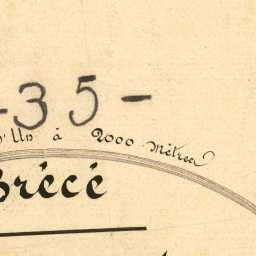 -35-
d'Un à 2000 Mètres
Brécé